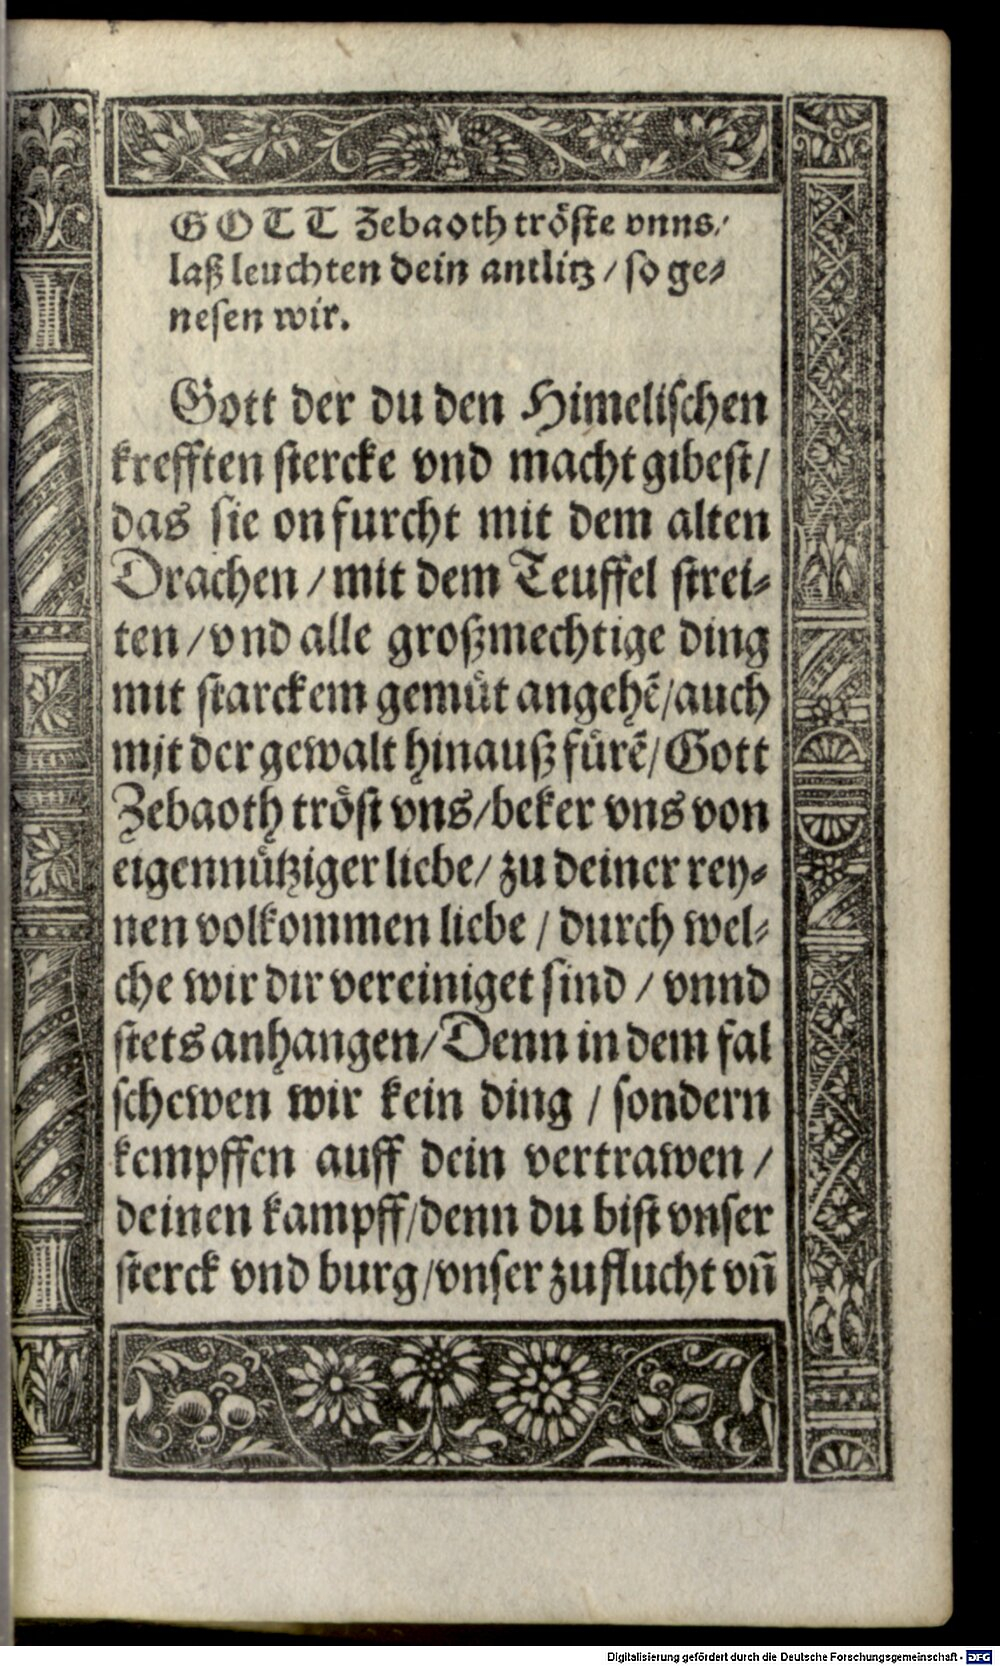 GOTT Zebaoth tröste vnns/
laß leuchten dein antlitz / so ge⸗
nesen wir.
Gott der du den Himelischen
krefften stercke vnd macht gibest/
das sie on furcht mit dem alten
Drachen / mit dem Teuffel strei⸗
ten / vnd alle großmechtige ding
mit starckem gemuͤt angehẽ/auch
mit der gewalt hinauß fuͤrẽ/ Gott
Zebaoth tröst vns/beker vns von
eigennuͤtziger liebe/ zu deiner rey⸗
nen volkommen liebe / durch wel⸗
che wir dir vereiniget sind / vnnd
stets anhangen/Denn in dem fal
schewen wir kein ding / sondern
kempffen auff dein vertrawen /
deinen kampff/denn du bist vnser
sterck vnd burg/vnser zuflucht vñ
Digitalisierung gefördert durch die Deutsche Forschungsgemeinschaft - DFG